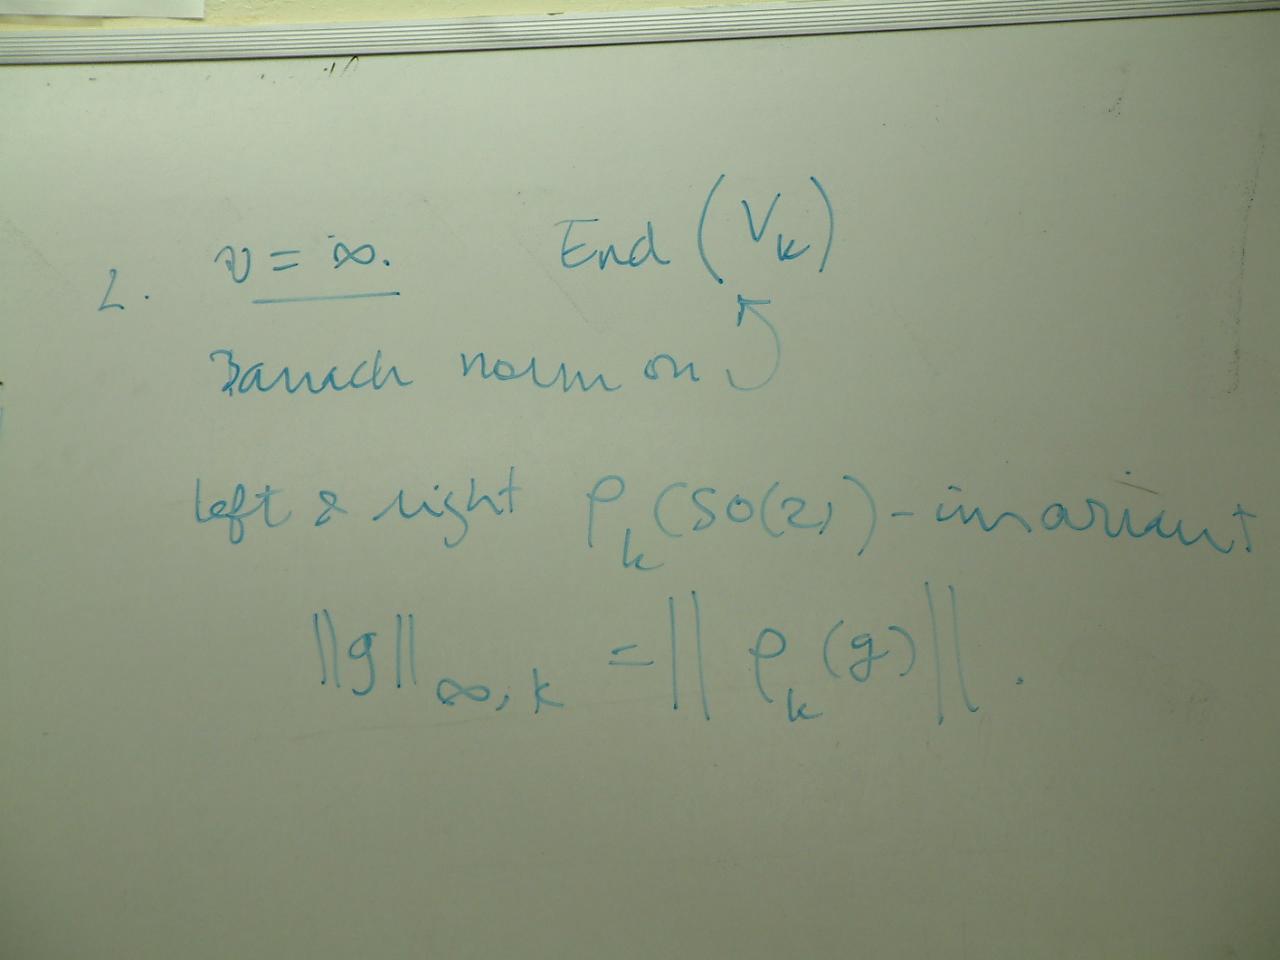 2. v = ∞. End (V_k)
Banach norm on
left & right ρ_k(SO(2))-invariant
||g||_∞,k = ||ρ_k(g)||.